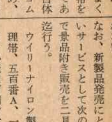 なお、新製品発売に
いサービスとして次の
で景品附き販売を二月
迄行う。
ウイリーナイロン製
理帯、五百番Ａ、